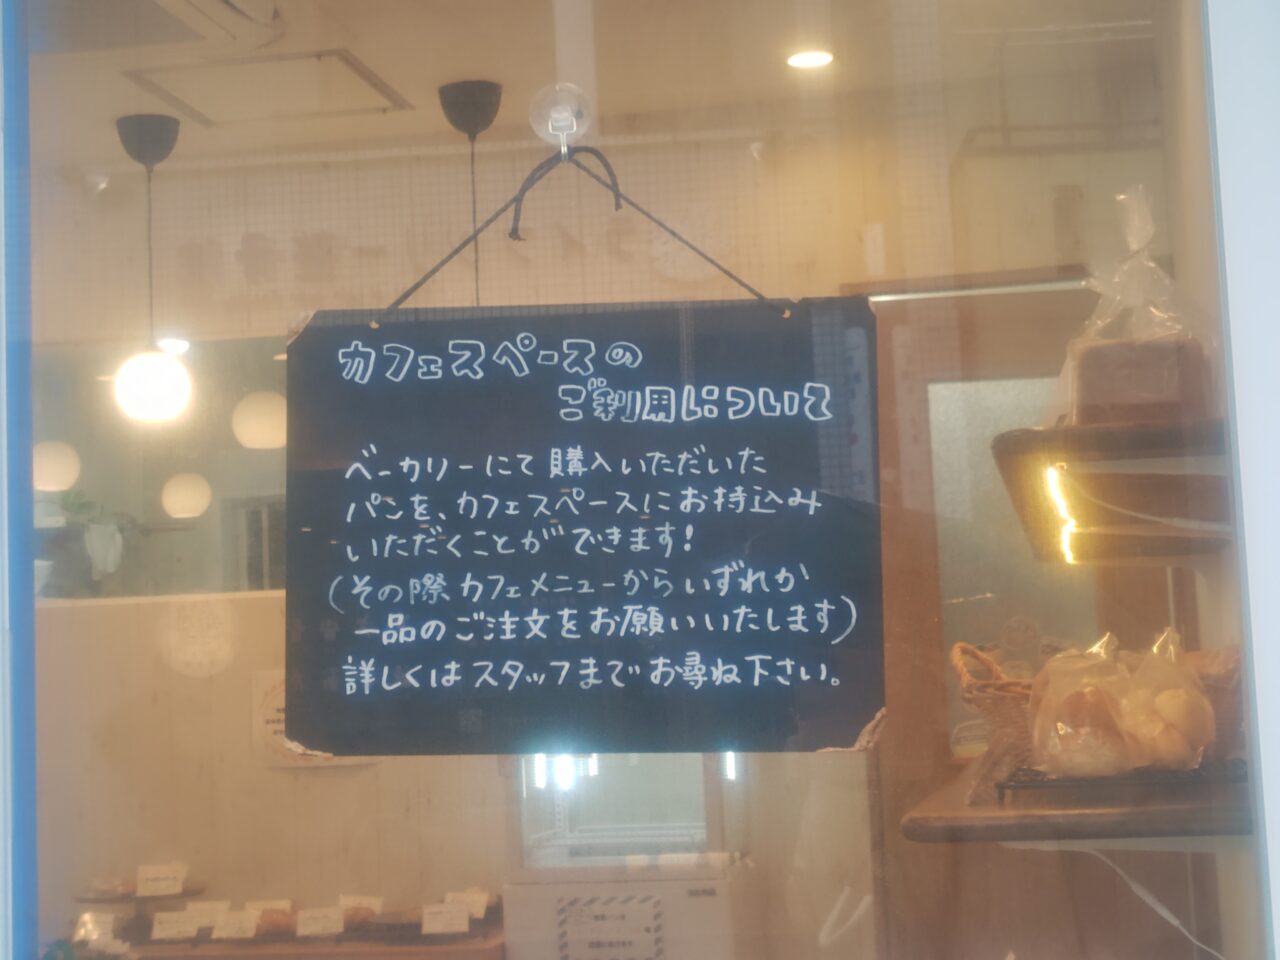 カフェスペースの
ご利用について
ベーカリーにて購入いただいた
パンを、カフェスペースにお持込み
いただくことができます!
(その際カフェメニューからいずれか
一品のご注文をお願いいたします)
詳しくはスタッフまでお尋ね下さい。